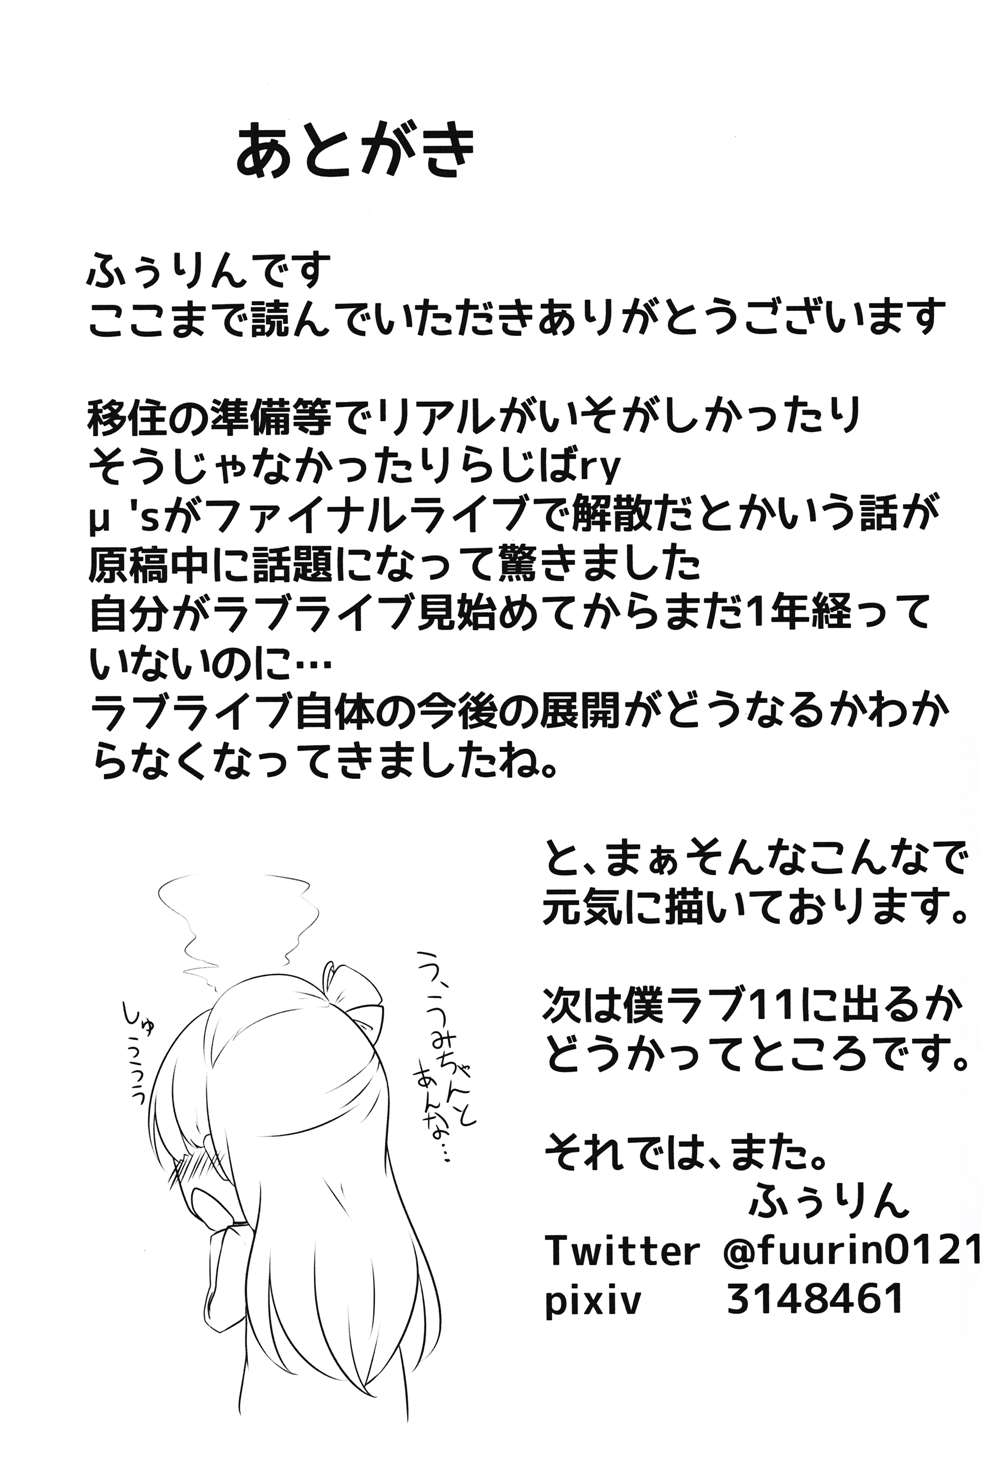 あとがき
ふぅりんです
ここまで読んでいただきありがとうございます
移住の準備等でリアルがいそがしかったり
そうじゃなかったりらじばry
μ'sがファイナルライブで解散だとかいう話が
原稿中に話題になって驚きました
自分がラブライブ見始めてからまだ1年経って
いないのに…
ラブライブ自体の今後の展開がどうなるかわか
らなくなってきましたね。
と、まぁそんなこんなで
元気に描いております。
次は僕ラブ11に出るか
どうかってところです。
それでは、また。
ふぅりん
Twitter @fuurin0121
pixiv 3148461
う、うみちゃんと
あんな…
しゅぅぅぅ